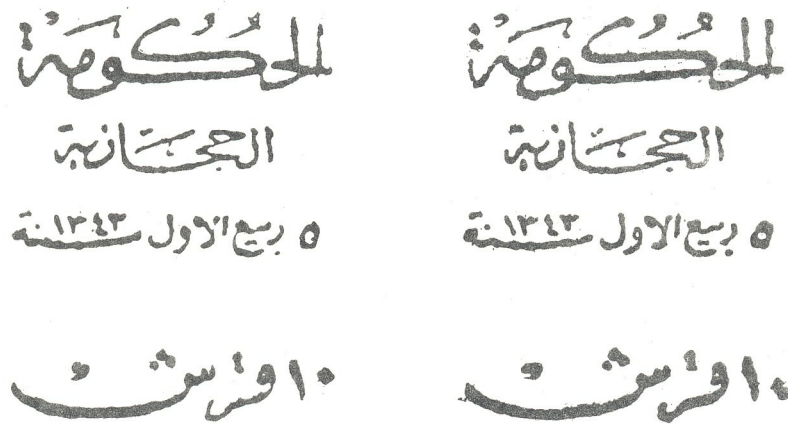 الحكومة
الحجازية
٥ ربيع الاول سنة ١٣٤٣
١٠ قرش
الحكومة
الحجازية
٥ ربيع الاول سنة ١٣٤٣
١٠ قرش